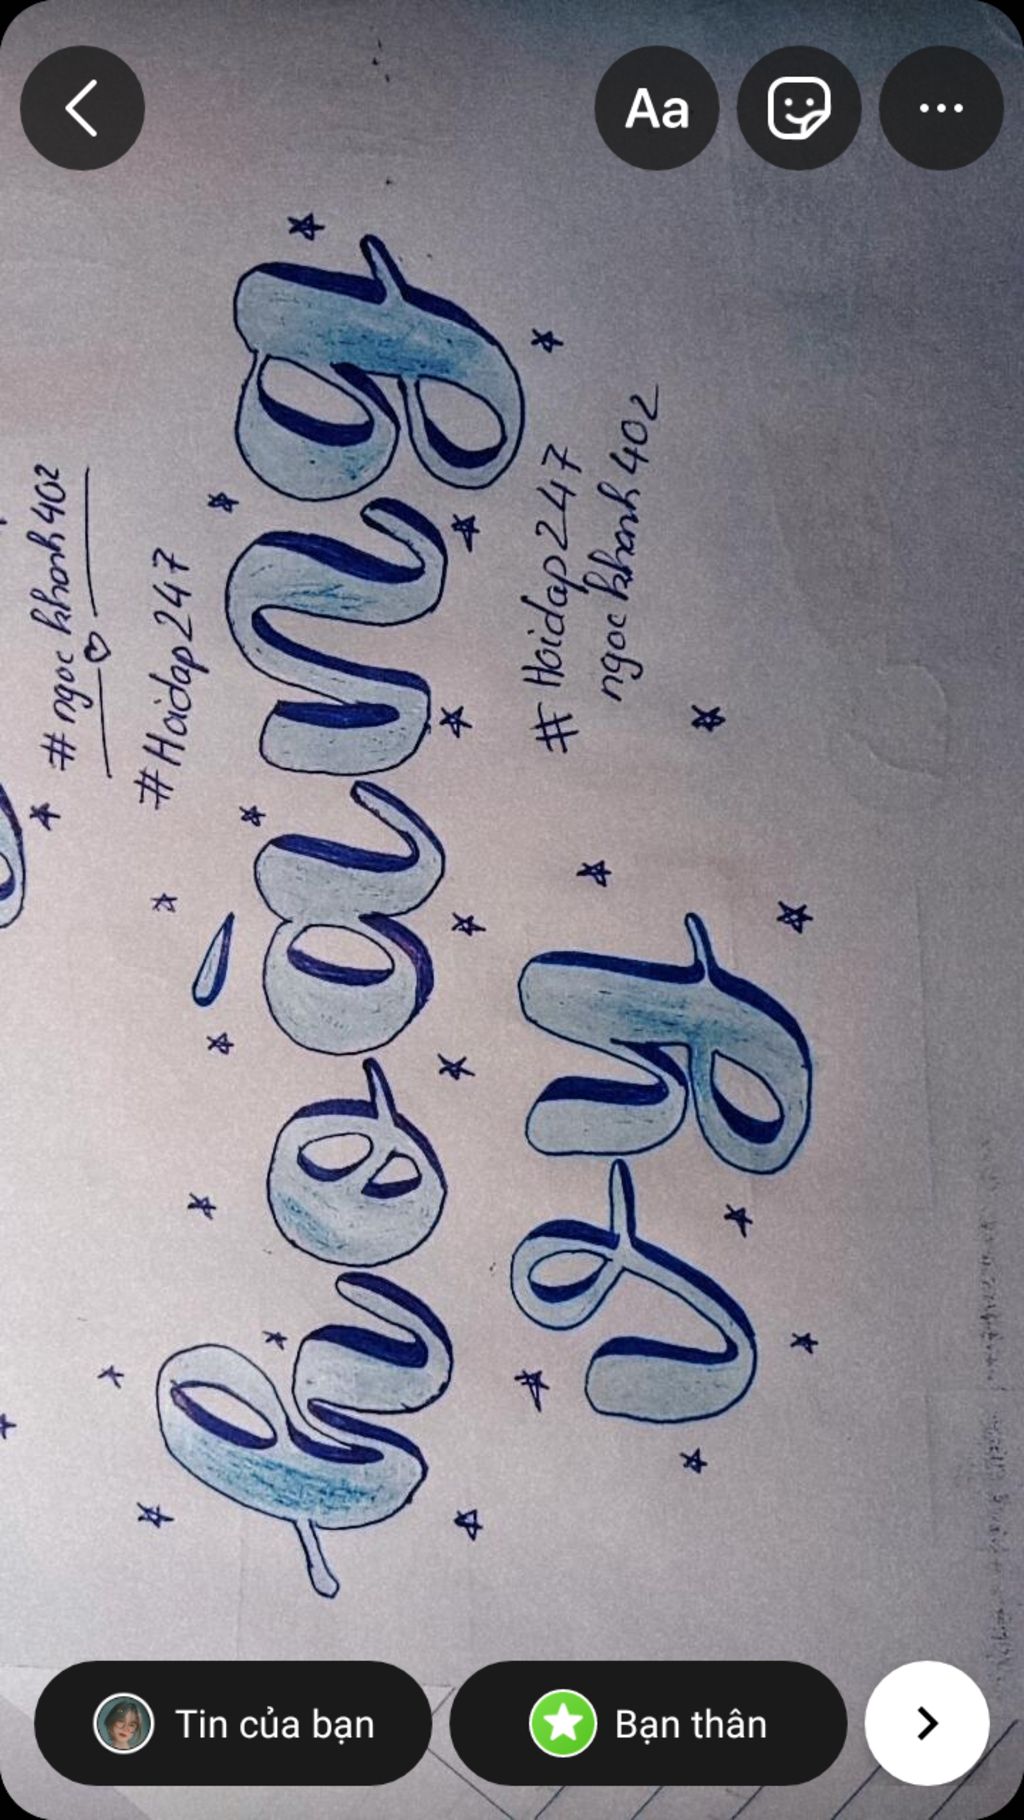 Aa
# ngoc khanh 402
#Hoidap247
hoàng
vy
#Hoidap247
ngoc khanh 402
Tin của bạn
Bạn thân